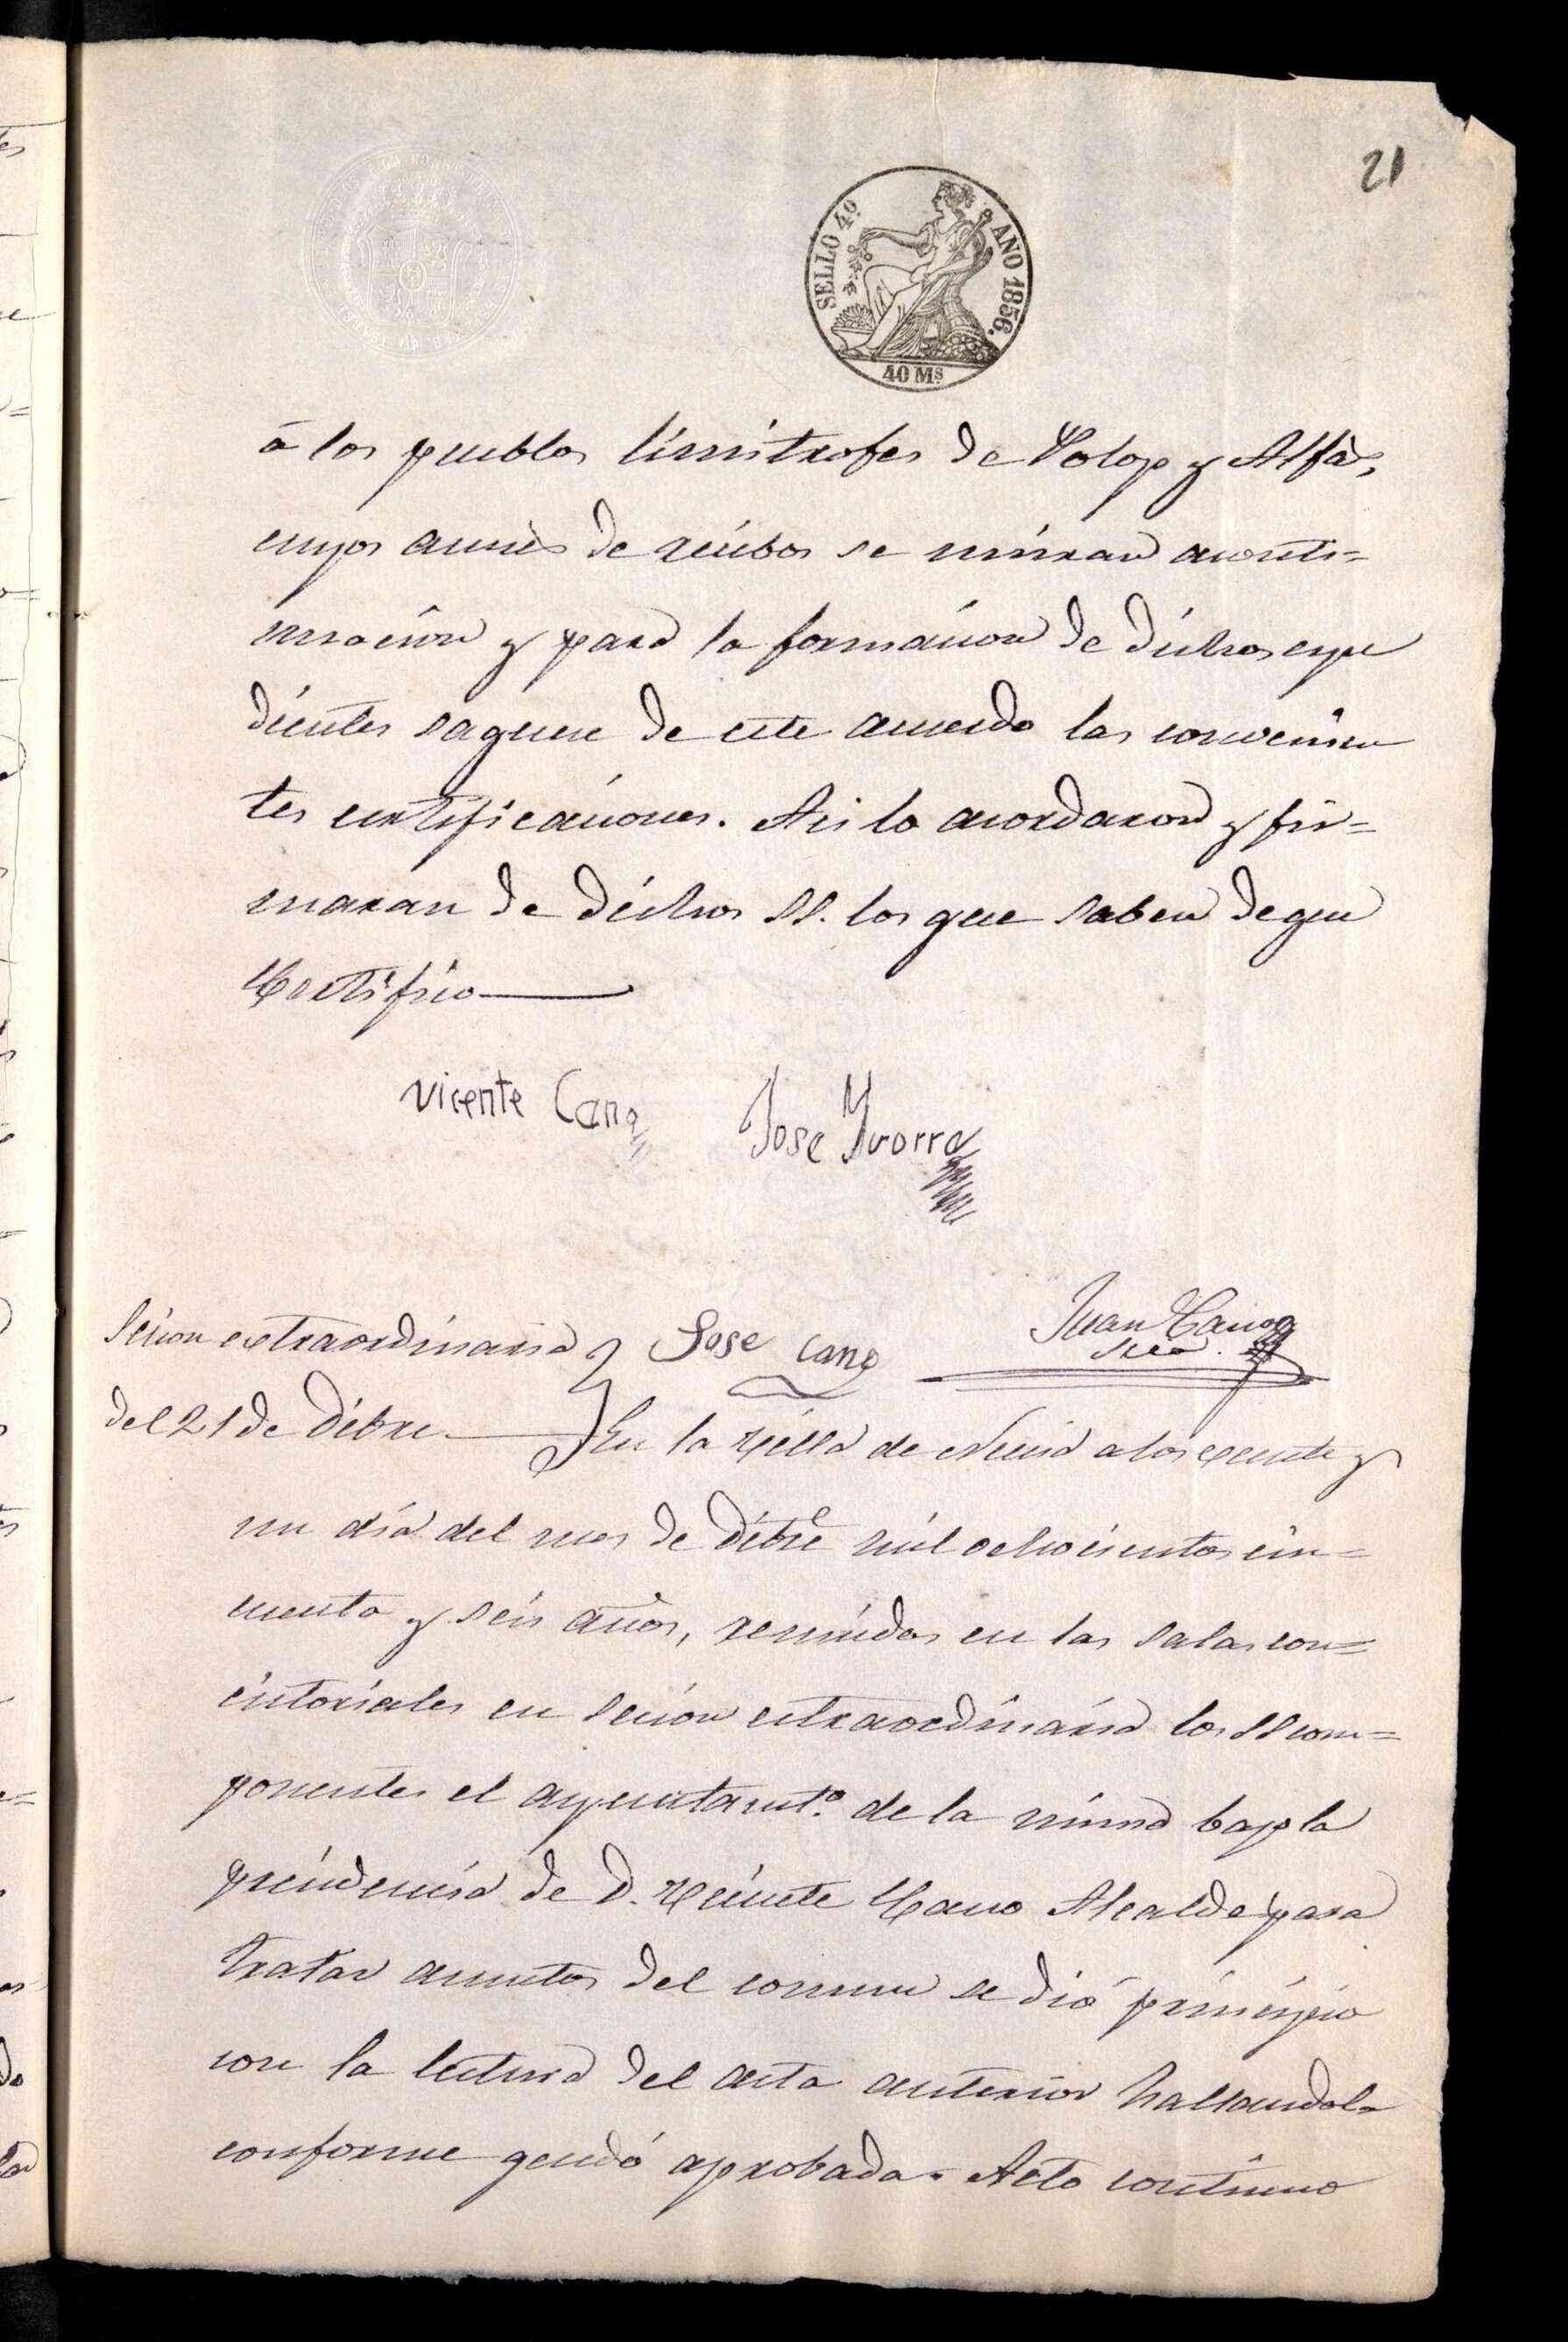 21
SELLO 4º AÑO 1856.
40 Ms
á los pueblos limitrofes de Polop y Alfàs,
cuyos avisos de recibos se miran aconti=
nuacion y para la formacion de dichos espe
dientes saquese de este acuerdo las convenien
tes certificaciones. Asi lo acordaron y fir=
maran de dichos SS. los que saben de que
Certifico
Vicente Cano Jose Yvorra
Jose Cano
Juan Cano
Srio.
Sesion extraordinaria
del 21 de Dibre
En la Villa de Nucia a los veinte y
un dia del mes de Dibre mil ochocientos cin=
cuenta y seis años, reunidos en las salas con=
sistoriales en sesion estraordinaria los SS com=
ponentes el ayuntamto. de la misma bajo la
presidencia de D. Vicente Cano Alcalde para
tratar asuntos del comun se dió principio
con la lectura del acta anterior hallandola
conforme quedó aprobada. Acto continuo